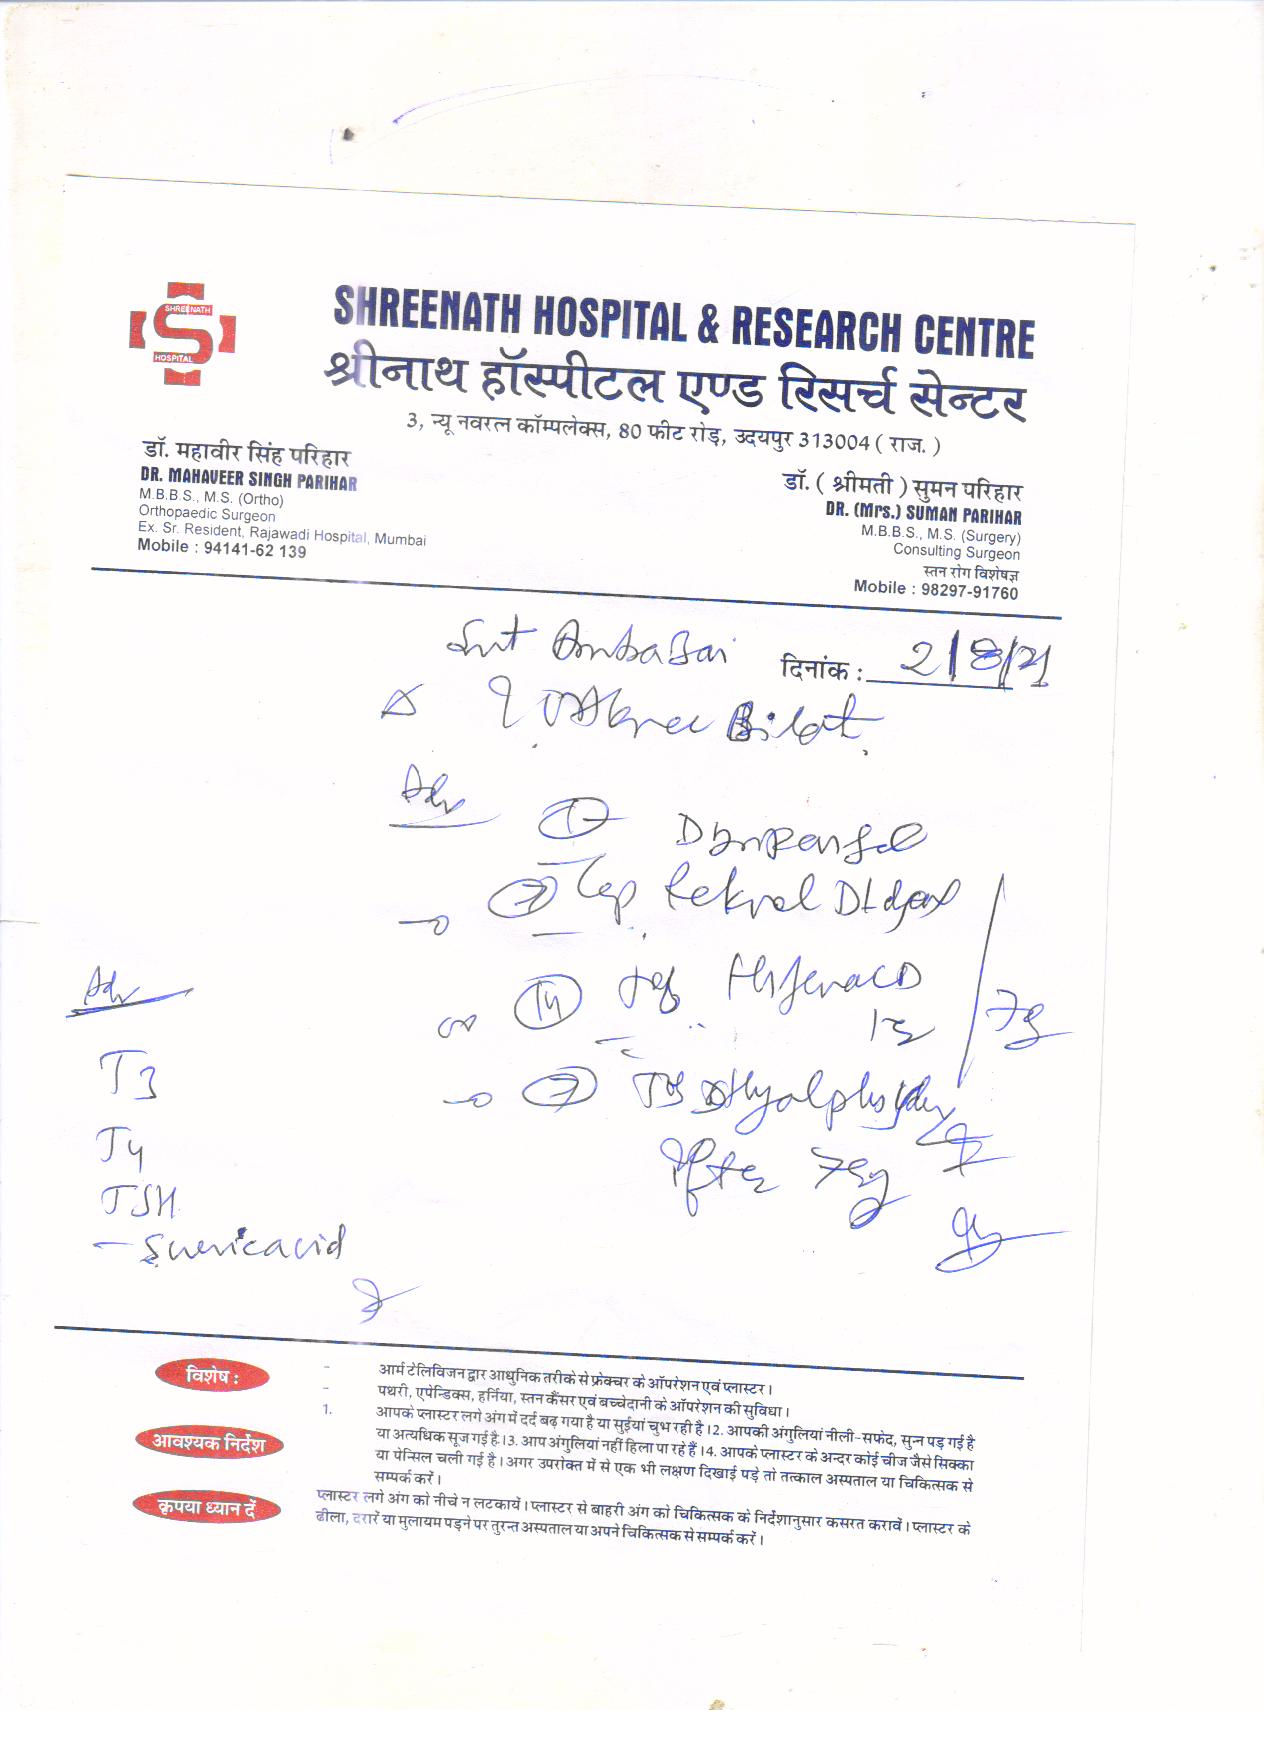 SHREENATH
HOSPITAL
SHREENATH HOSPITAL & RESEARCH CENTRE
श्रीनाथ हॉस्पीटल एण्ड रिसर्च सेन्टर
3, न्यू नवरत्न कॉम्पलेक्स, 80 फीट रोड़, उदयपुर 313004 ( राज. )
डॉ. महावीर सिंह परिहार
DR. MAHAVEER SINGH PARIHAR
M.B.B.S., M.S. (Ortho)
Orthopaedic Surgeon
Ex. Sr. Resident, Rajawadi Hospital, Mumbai
Mobile : 94141-62 139
डॉ. ( श्रीमती ) सुमन परिहार
DR. (Mrs.) SUMAN PARIHAR
M.B.B.S., M.S. (Surgery)
Consulting Surgeon
स्तन रोग विशेषज्ञ
Mobile : 98297-91760
Smt
दिनांक : 2/8/21
Adv
Adv
T3
T4
TSH
- S uric acid
विशेष :
- आर्म टेलिविजन द्वार आधुनिक तरीके से फ्रेक्चर के ऑपरेशन एवं प्लास्टर ।
- पथरी, एपेन्डिक्स, हर्निया, स्तन कैंसर एवं बच्चेदानी के ऑपरेशन की सुविधा ।
आवश्यक निर्देश
1. आपके प्लास्टर लगे अंग में दर्द बढ़ गया है या सुईयां चुभ रही है । 2. आपकी अंगुलियां नीली-सफेद, सुन्न पड़ गई है
या अत्यधिक सूज गई है. । 3. आप अंगुलियां नहीं हिला पा रहे हैं । 4. आपके प्लास्टर के अन्दर कोई चीज जैसे सिक्का
या पेन्सिल चली गई है । अगर उपरोक्त में से एक भी लक्षण दिखाई पड़े तो तत्काल अस्पताल या चिकित्सक से
सम्पर्क करें ।
कृपया ध्यान दें
प्लास्टर लगे अंग को नीचे न लटकायें । प्लास्टर से बाहरी अंग को चिकित्सक के निर्देशानुसार कसरत करावें । प्लास्टर के
ढीला, दरारें या मुलायम पड़ने पर तुरन्त अस्पताल या अपने चिकित्सक से सम्पर्क करें ।